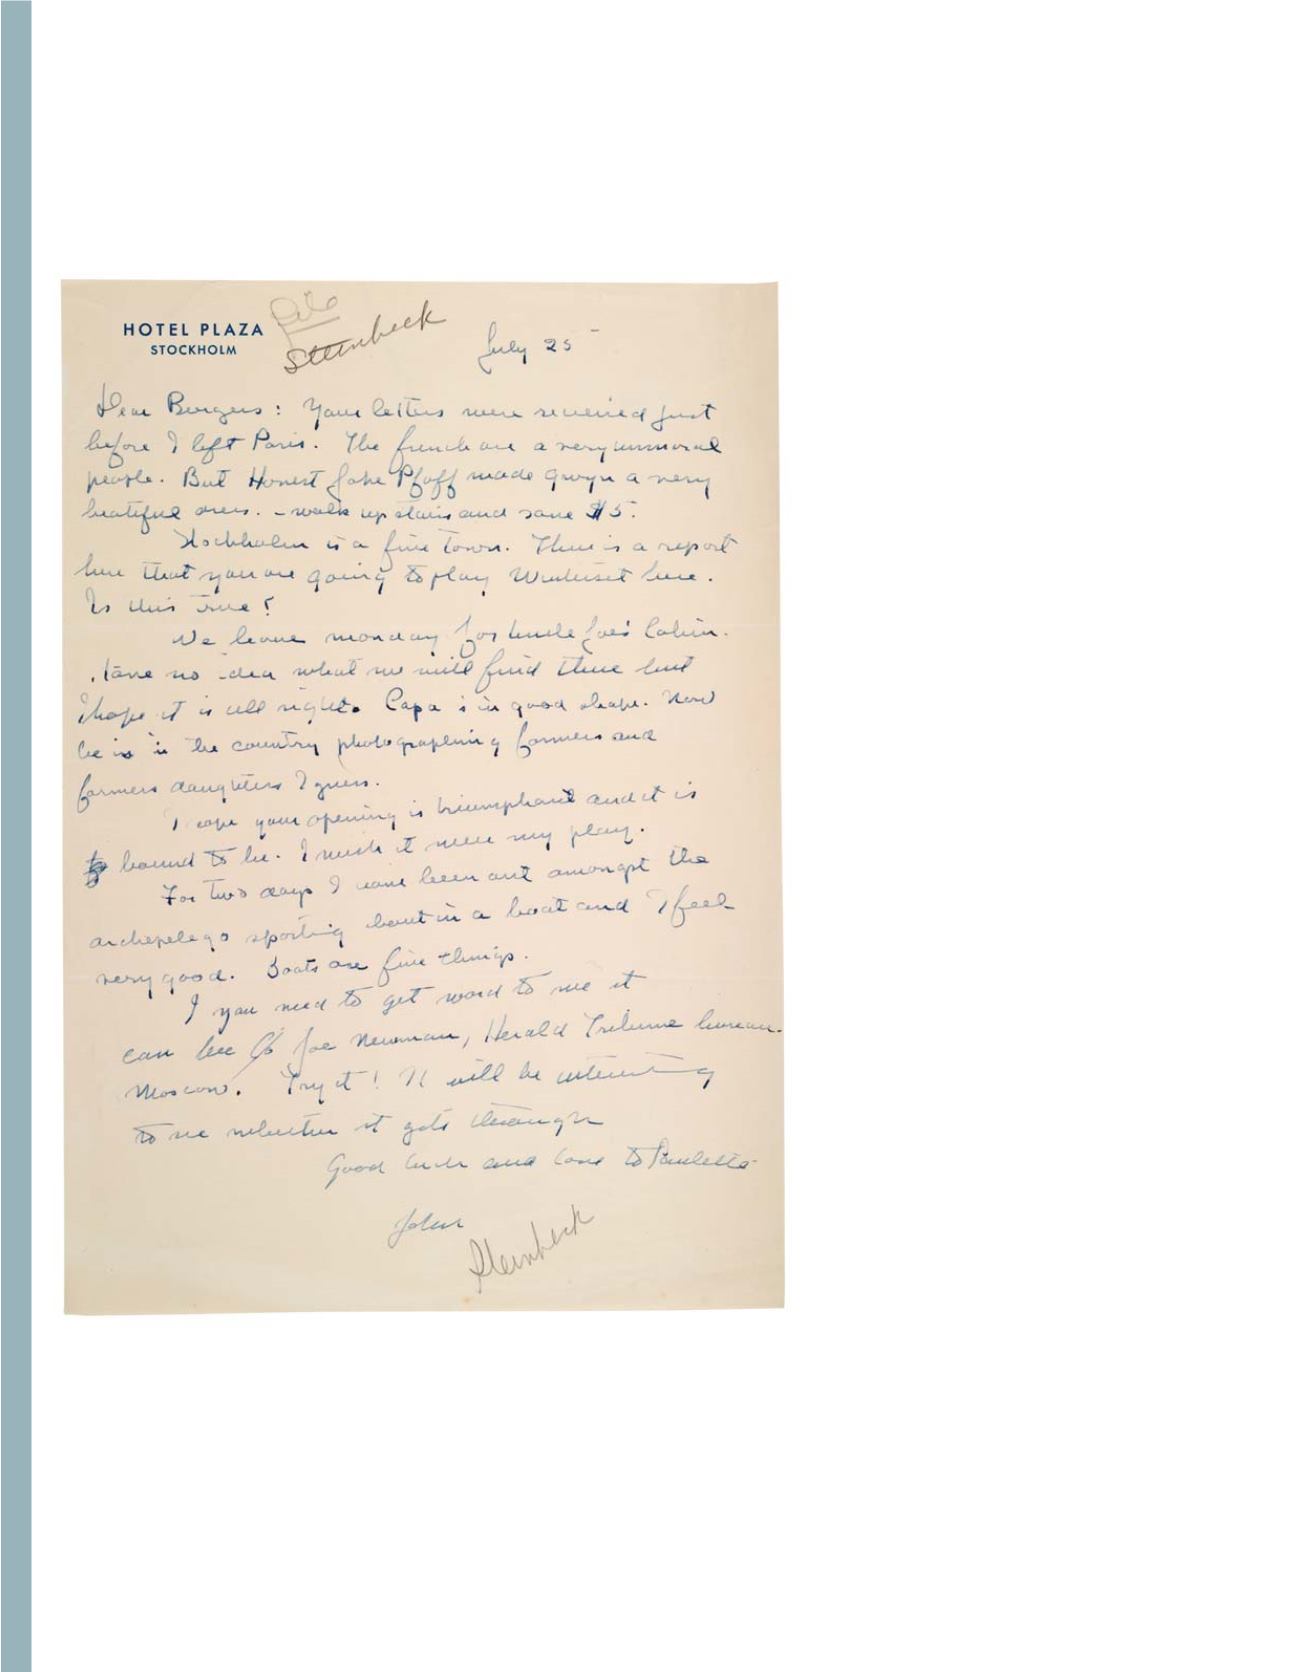 HOTEL PLAZA
STOCKHOLM
File
Steinbeck
July 25
Dear Burgess: Your letters were received just
before I left Paris. The french are a very unmoral
people. But Honest Jake Pfaff made Gwyn a very
beatiful dress. – walk up stairs and save $5.
Stockholm is a fine town. There is a report
here that you are going to play Winterset here.
Is this true?
We leave monday for Uncle Joe's Cabin.
Have no idea what we will find there but
I hope it is all right. Capa is in good shape. Now
he is in the country photographing farmers and
farmers daughters I guess.
I hope your opening is triumphant and it is
bound to be. I wish it were my play.
For two days I have been out amongst the
archepelego sporting about in a boat and I feel
very good. Boats are fine things.
I you need to get word to me it
can be c/o Joe Newman, Herald Tribune bureau.
Moscow. Try it! It will be interesting
to see whether it gets through
Good luck and love to Paulette
John
Steinbeck